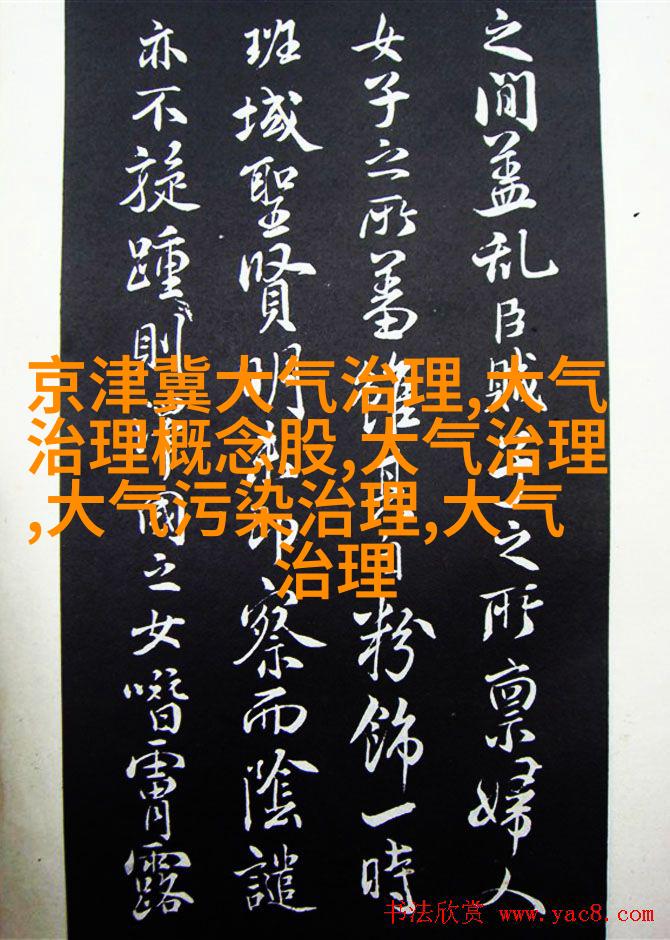 之間蓋乱臣賊之所禀婦人
女子之所蓄自粉飾一時
班域聖賢明即察而陰譴
亦不旋踵則國之女喈霄露
京津冀大气治理,大气
治理概念股,大气治理
,大气污染治理,大气
治理
书法欣赏 www.yac8.com